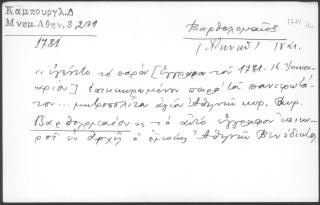 Καμπούρογλ. Δ
Μνημ. Αθην. 3, 239
1781
Βαρθολομαίος
1781
1821.
« ἐγένετο τό παρόν [ἔγγραφον τοῦ 1781 - 16 Ἰανουαρίου]
ἐπικυρωμένον παρά τοῦ πανιερωτάτου...
μητροπολίτου ἁγίου Ἀθηνῶν κυρ. κυρ.
Βαρθολομαίου » τό αὐτό ἔγγραφον ἐπικυροῖ
ἐν ἀρχῇ ὁ Ἀθηνῶν Βενέδικτος